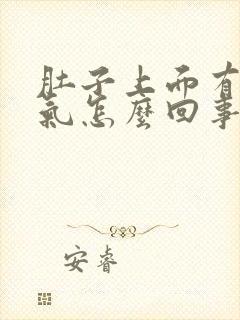 肚子上面有
氣怎麼回事
安睿